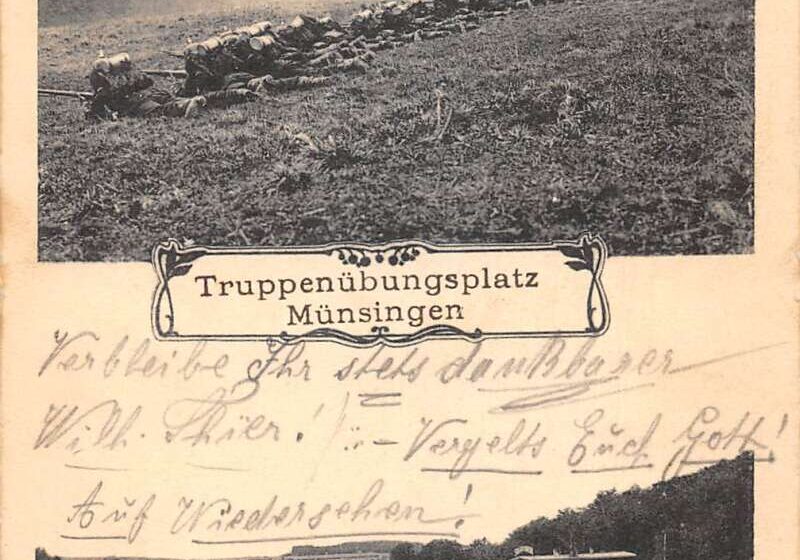 Truppenübungsplatz
Münsingen
Verbleibe Ihr stets dankbarer
Wilh. Thier! :- Vergelts Euch Gott!
Auf Wiedersehen!